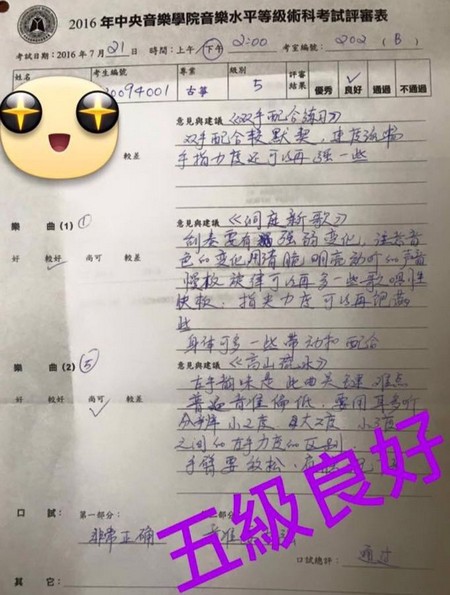 2016 年中央音樂學院音樂水平等級術科考試評審表
考試日期：2016 年 7 月 21 日 時間：上午／下午 2:00 考室編號： 202 (B)
姓名 考生編號 專業 級別 評審結果 優秀 良好 通過 不通過
0094001 古箏 5
意見與建議《双手配合练习》
双手配合较默契，速度
較差 手指力度还可以再强一些
樂 曲 (1) ① 意見與建議《洞庭新歌》
刮奏要有强弱变化，注意音
好 較好 尚可 較差 色的变化用清脆明亮
慢板旋律可以再多一些歌唱性
快板：指尖力度可以再饱满
些
身体可多一些带动和配合
樂 曲 (2) ⑤ 意見與建議《高山流水》
左手韵味是此曲
好 較好 尚可 較差 音准偏低，要用耳多听
分辨小2度 大2度 小3度
之间的左手力度的区别
手臂要放松
口 試： 第一部分：
非常正确 音准
口試總評： 通过
其 它：
五級良好